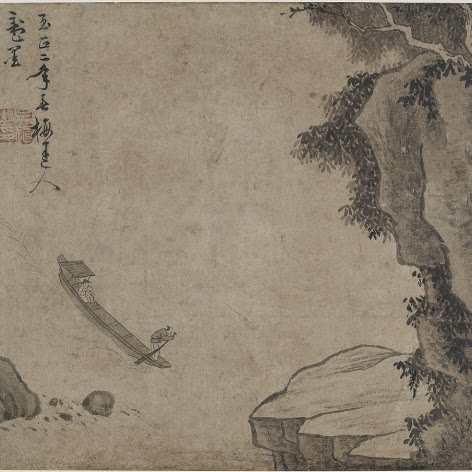 至正二年春梅道人
戲墨